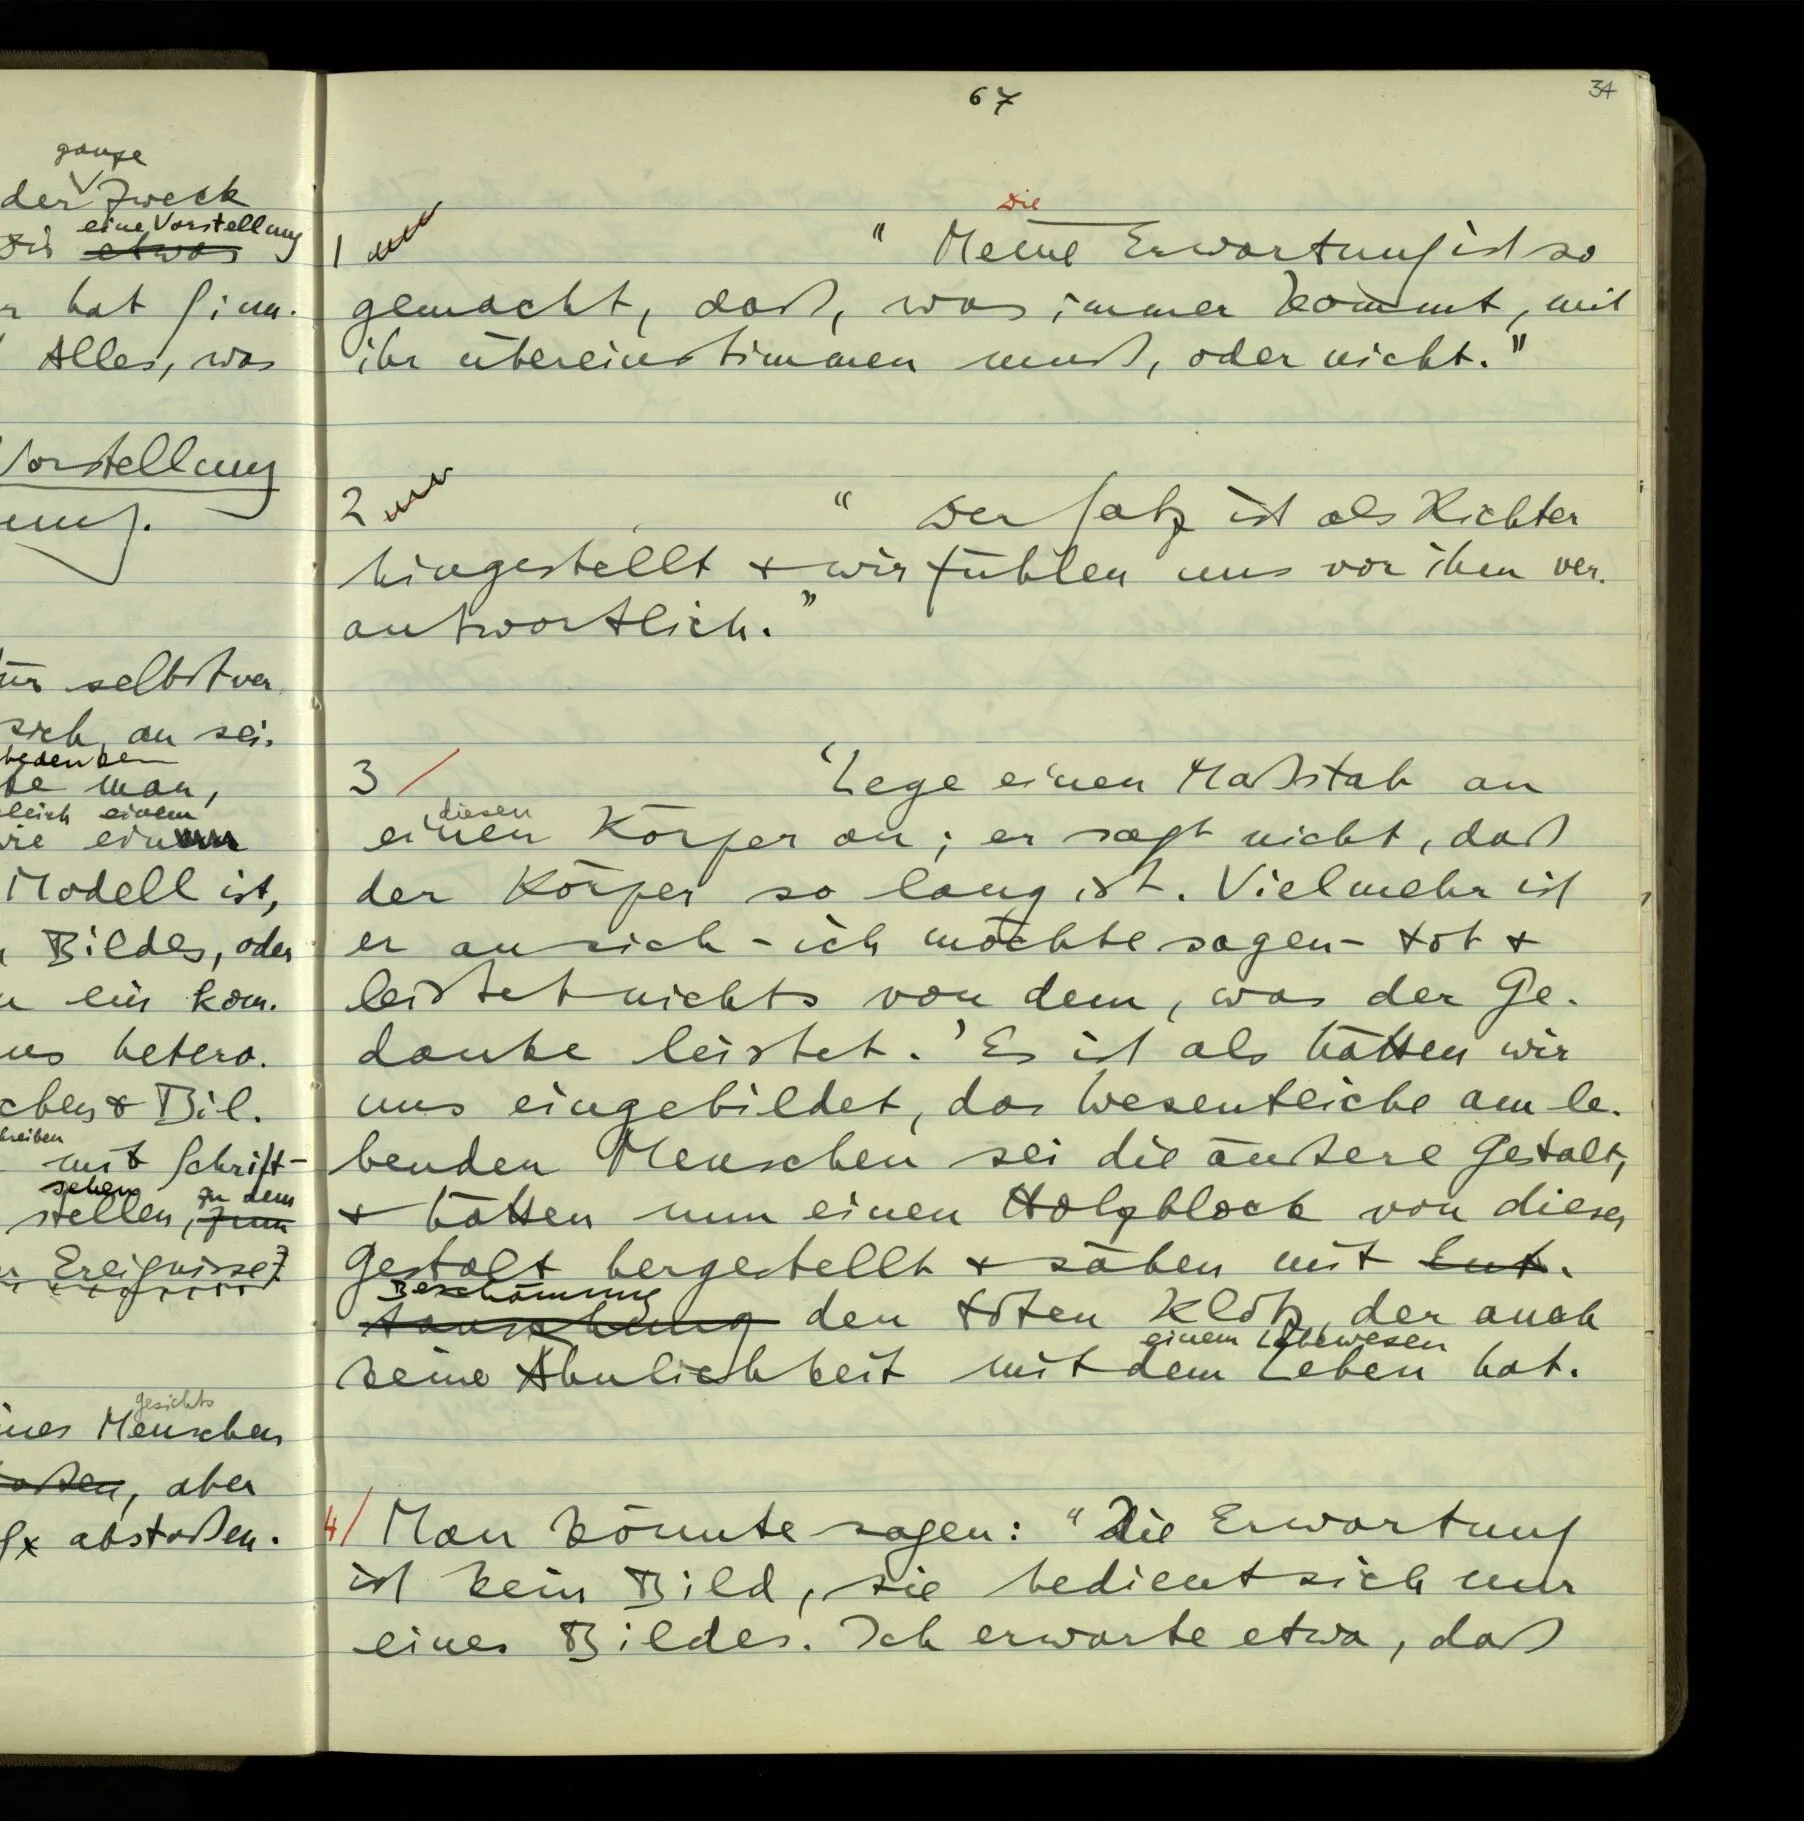 ganze
der Zweck
eine Vorstellung
etwas
hat Sinn.
Alles, was
Vorstellung
selbstver
sich, an sei.
bedenken
man,
gleich einem
Modell ist,
Bildes, oder
ein kom.
hetero.
& Bil.
mit Schrift-
sehen zu dem
stellen, zum
Ereignisse
gesichts
Menschen
, aber
abstoßen.
67
34
Die
1 " Meine Erwartung ist so
gemacht, daß, was immer kommt, mit
ihr übereinstimmen muß, oder nicht."
2 " Der Satz ist als Richter
hingestellt & wir fühlen uns vor ihm ver.
antwortlich."
3 / 'Lege einen Maßstab an
diesen
einen Körper an; er sagt nicht, daß
der Körper so lang ist. Vielmehr ist
er an sich - ich möchte sagen - tot &
leistet nichts von dem, was der Ge.
danke leistet.' Es ist als hätten wir
uns eingebildet, das Wesentliche am le.
benden Menschen sei die äußere Gestalt,
& hätten nun einen Holzblock von dieser
Gestalt hergestellt & sähen mit Ent.
Beschämung
täuschung den toten Klotz, der auch
einem Lebewesen
keine Ähnlichkeit mit dem Leben hat.
4/ Man könnte sagen: "Die Erwartung
ist kein Bild, sie bedient sich nur
eines Bildes. Ich erwarte etwa, daß